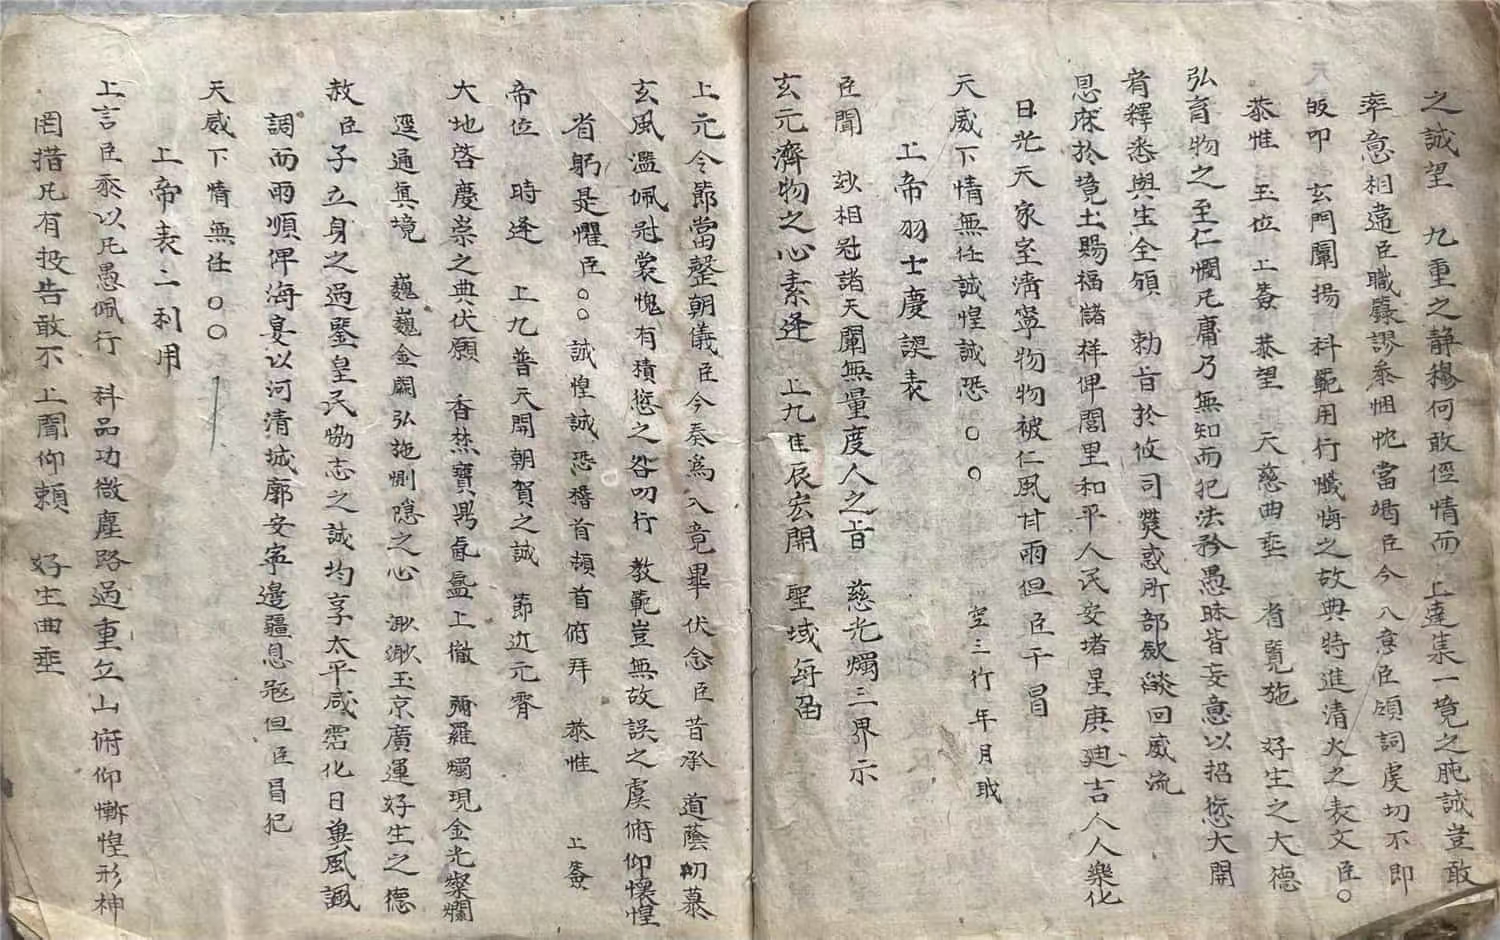 之誠望 九重之静穆何敢徑情而 上達集一境之肫誠豈敢
率意相違臣職隸謬叅悃忱當竭臣今 入意臣領詞虔切不即
皈叩 玄門闡揚 科範用行懺悔之故典特進清火之表文臣〇
恭惟 玉位 上簽恭望 天慈曲垂 省覽施 好生之大德
弘育物之至仁憫凡庸乃無知而犯法矜愚昧皆妄意以招愆大開
宥釋悉與生全頒 勅旨於攸司熒惑所部歛燄回威流
恩庥於境土賜福儲祥俾閭里和平人民安堵星庚迪吉人人樂化
日光天家室濟寧物物被仁風甘雨但臣干冒
天威下情無任誠惶誠恐〇〇 空三行年月日
上帝羽士慶誕表
臣聞 玅相冠諸天闡無量度人之旨 慈光燭三界示
玄元濟物之心素逢 上九佳辰宏開 聖域每囧
上元令節當整朝儀臣今奏爲入竟畢伏念臣昔承 道蔭切慕
玄風濫佩冠裳愧有積愆之咎叨行 教範豈無故誤之虞俯仰懷惶
省躬是懼臣〇〇誠惶誠恐稽首頓首俯拜 恭惟 上簽
帝位 時逢 上九普天開朝賀之誠 節近元霄
大地啓慶崇之典伏願 香焚寶鼎氤氳上徹 彌羅燭現金光燦爛
逕通真境 巍巍金闕弘施惻隱之心 渺渺玉京廣運好生之德
赦臣子立身之過鑒皇民協志之誠均享太平咸霑化日奠風諷
調而雨順俾海宴以河清城廓安寧邊疆息彪但臣冒犯
天威下情無任〇〇
上帝表二利用
上言臣忝以凡愚佩行 科品功微塵路過重丘山俯仰慚惶形神
罔措凡有投告敢不 上聞仰賴 好生曲垂